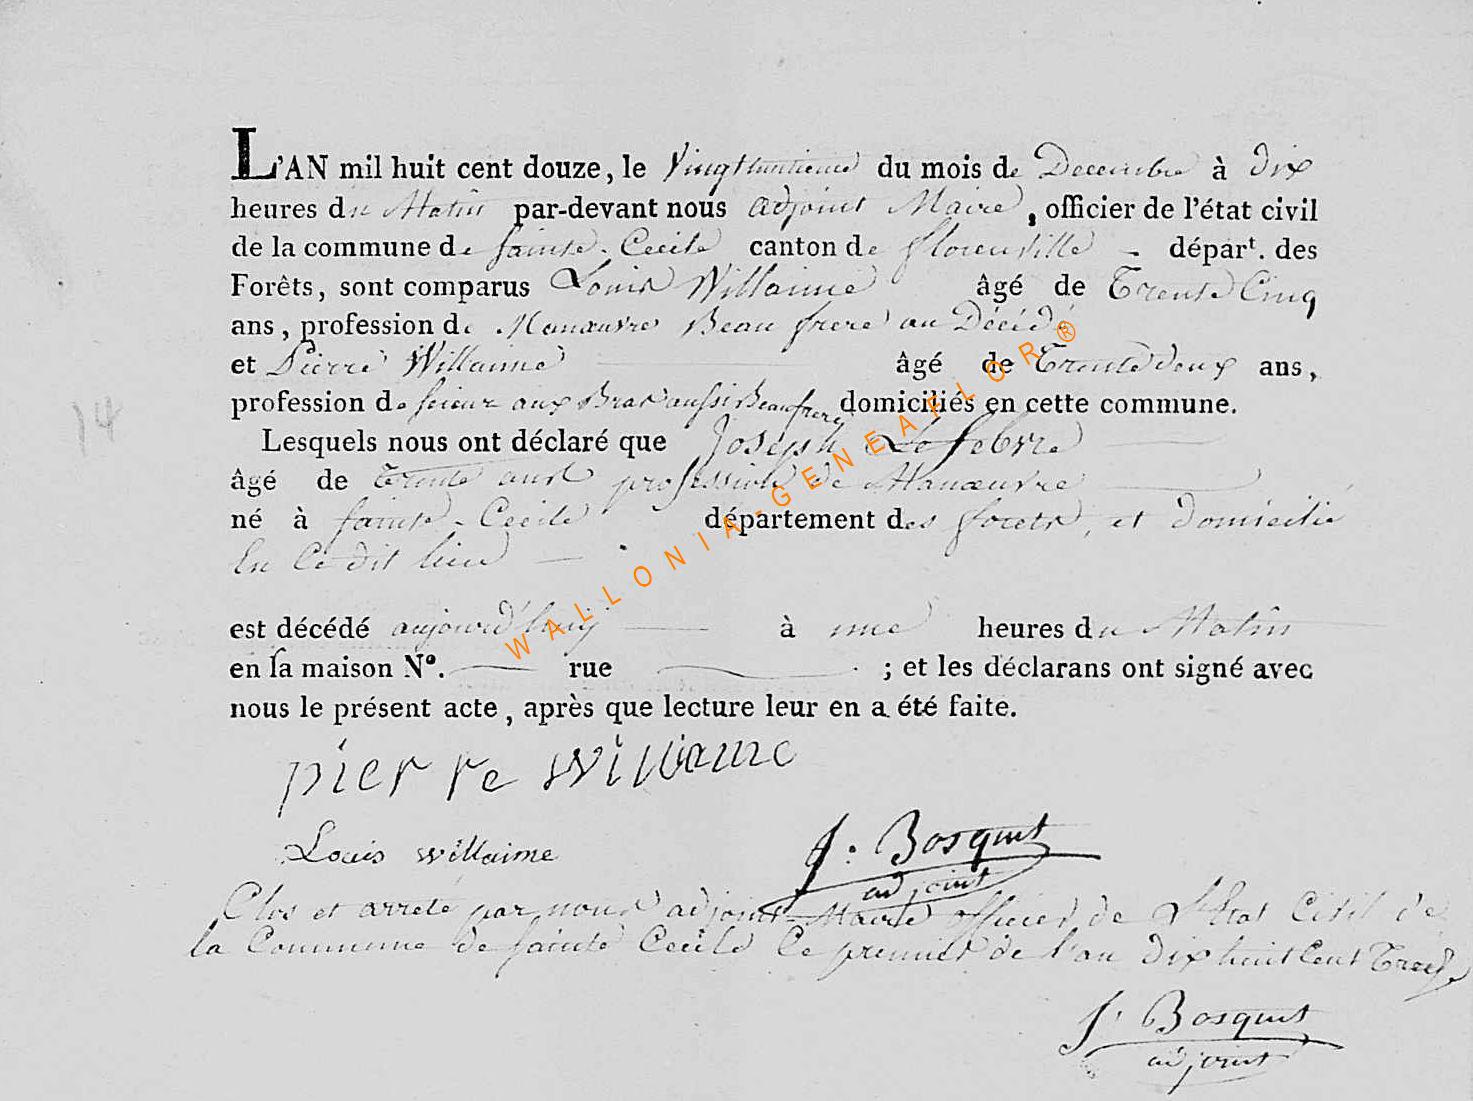 L'AN mil huit cent douze, le Vingthuitieme du mois de Decembre à dix
heures du Matin par-devant nous adjoint Maire, officier de l'état civil
de la commune de Sainte-Cecile canton de florenville - départ. des
Forêts, sont comparus Louis Willaime âgé de Trente Cinq
ans, profession de Manœuvre Beau frere au Décédé
et Pierre Willaime âgé de Trente deux ans,
profession de scieur aux Bras aussi Beau frere domiciliés en cette commune.
Lesquels nous ont déclaré que Joseph Lefebvre
14
âgé de trente ans profession de Manœuvre
né à sainte-Cecile département des forets, et domicilié
En Ce dit lieu
est décédé aujourd'huij à une heures du Matin
en sa maison N°. rue ; et les déclarans ont signé avec
nous le présent acte, après que lecture leur en a été faite.
pierre willaime
Louis willaime
J. Bosquet
adjoint
Clos et arreté par nous adjoint-Maire officier de L'Etat Civil de
la Commune de Sainte Cecile Ce premier de l'an dix huit Cent Treize
J. Bosquet
adjoint
WALLONIA-GENEAFLOR®